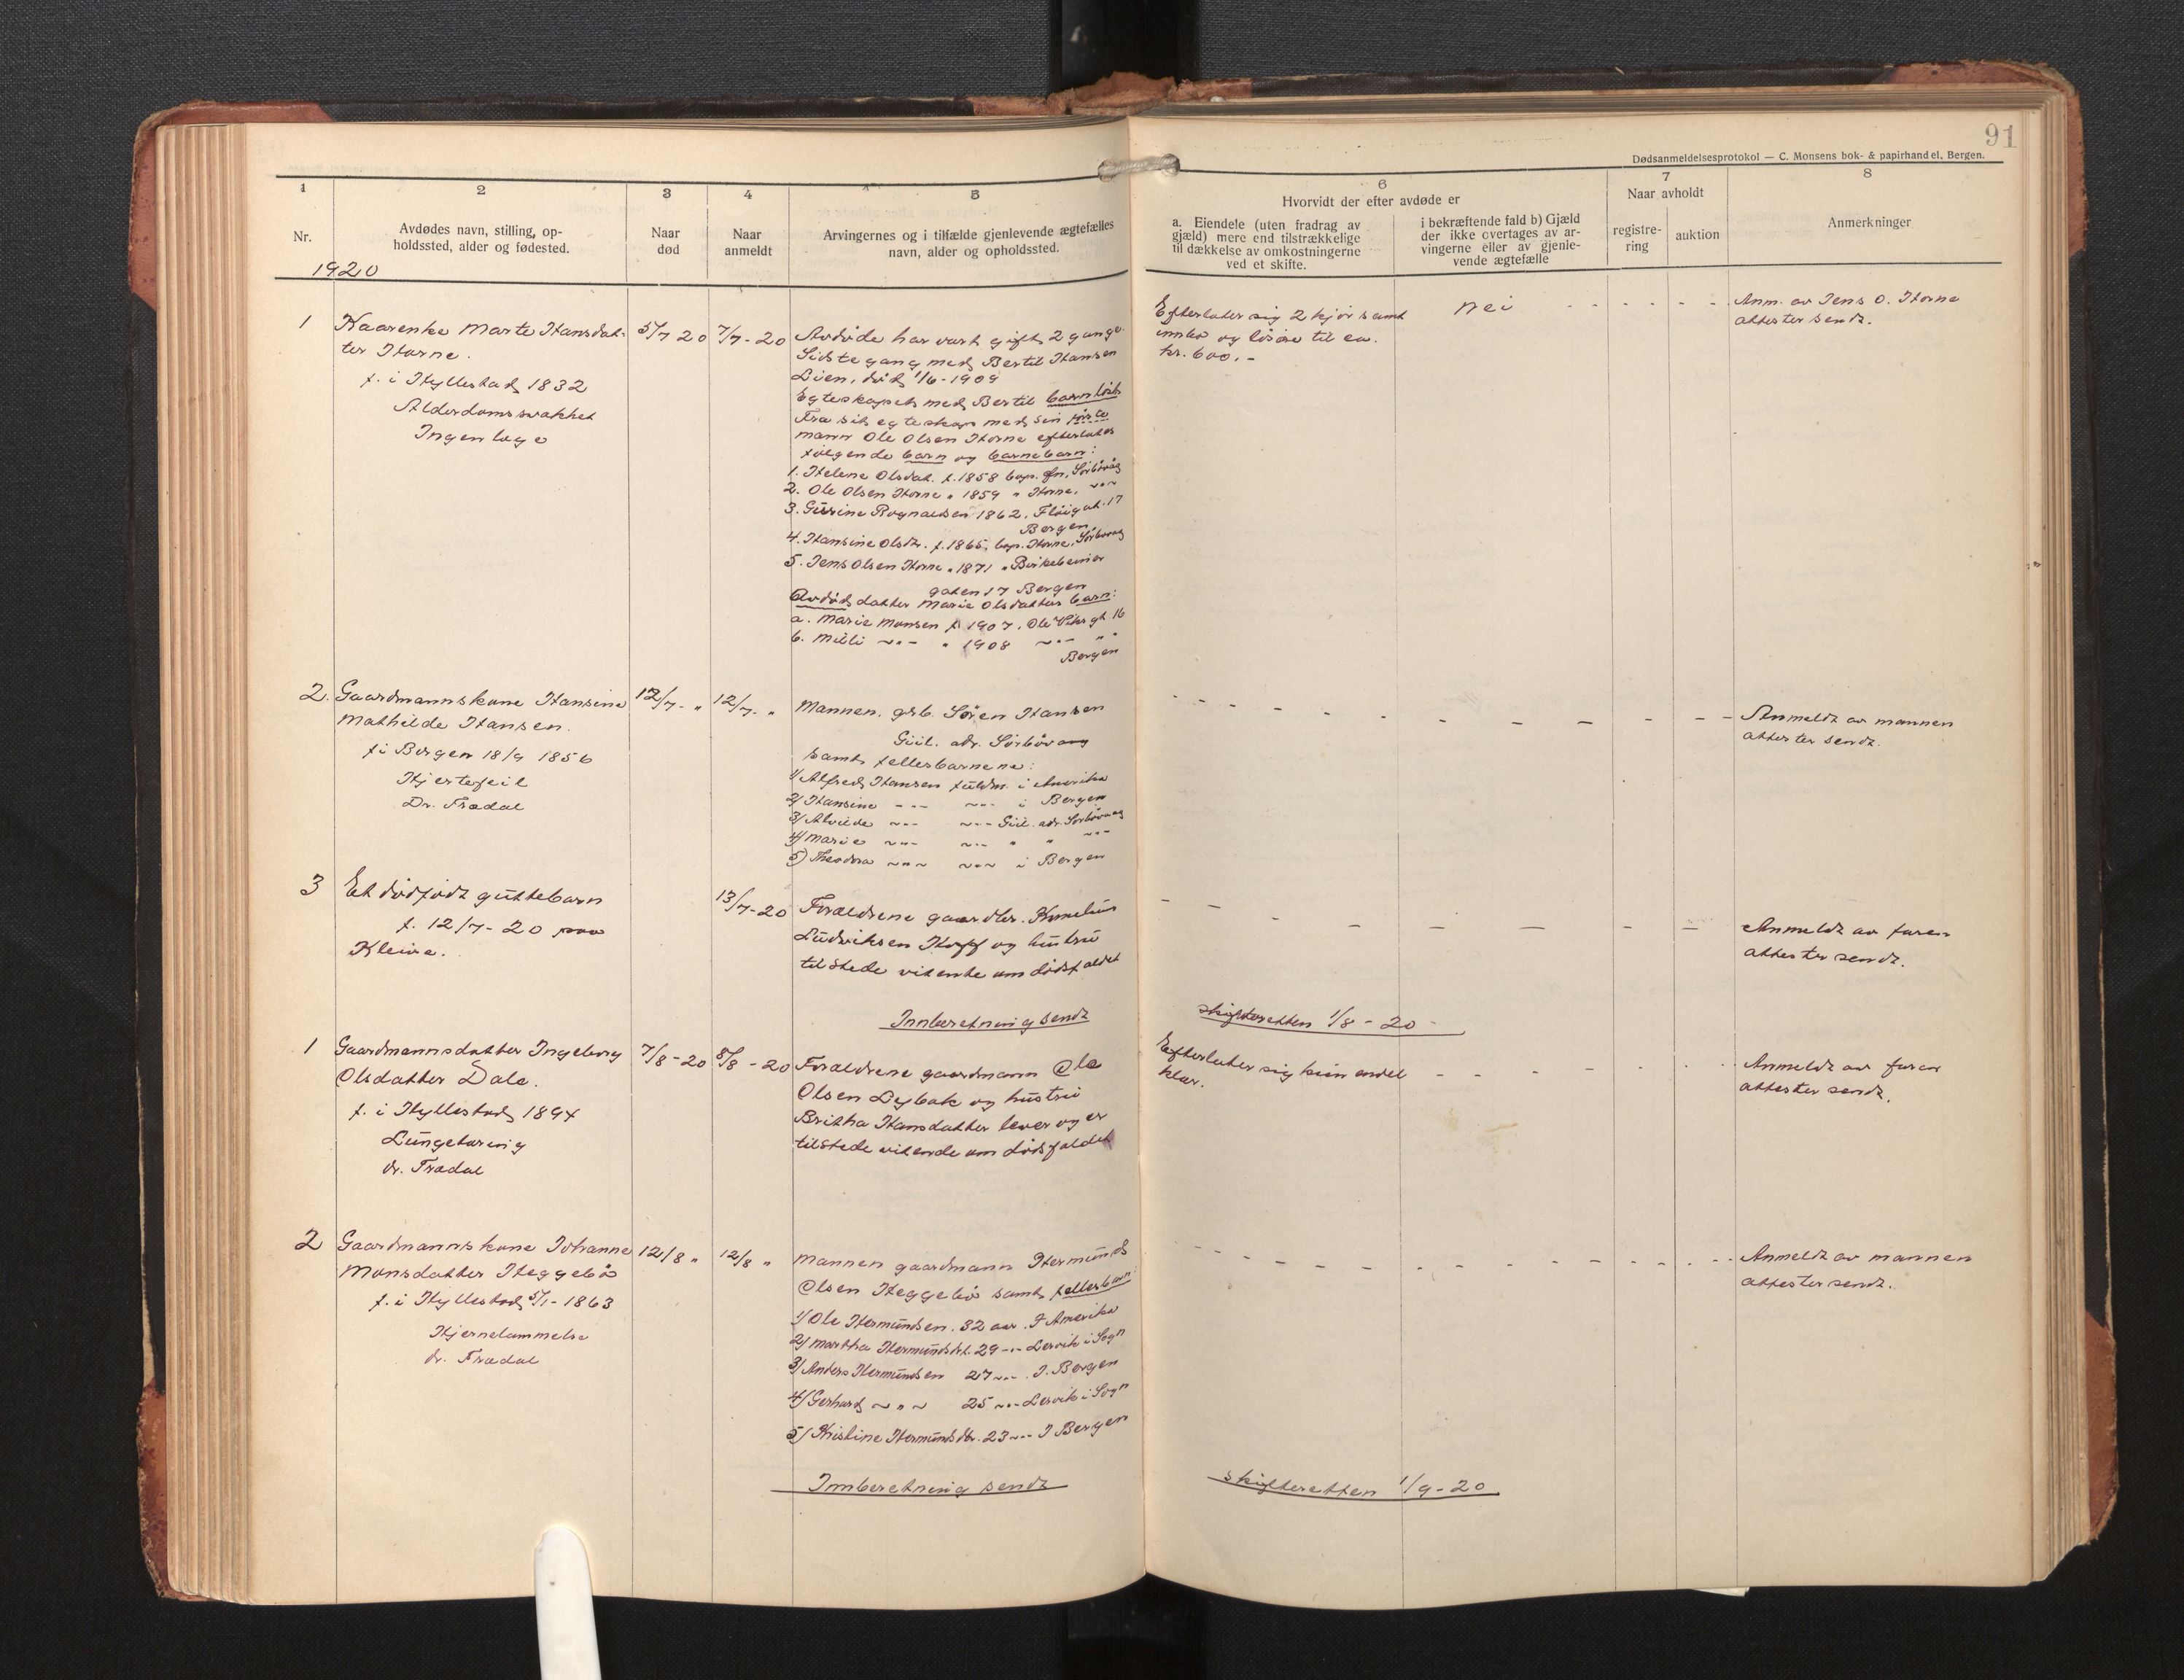 91
Dødsanmeldelsesprotokol — C. Monsens bok- & papirhandel, Bergen.
1
2
3
4
5
6
7
8
Nr.
Avdødes navn, stilling, op-
holdssted, alder og fødested.
Naar
død
Naar
anmeldt
Arvingernes og i tilfælde gjenlevende ægtefælles
navn, alder og opholdssted.
Hvorvidt der efter avdøde er
a. Eiendele (uten fradrag av
gjæld) mere end tilstrækkelige
til dækkelse av omkostningerne
ved et skifte.
i bekræftende fald b) Gjæld
der ikke overtages av ar-
vingerne eller av gjenle-
vende ægtefælle
Naar avholdt
registre-
ring
auktion
Anmerkninger
1920
1
Kaarenke Marte Hansdat-
ter Horne.
f. i Hyllestad 1832
Alderdomssvakhet
Ingen læge
5/7 20
7/7-20
Avdøde har vært gift 2 gange.
Sidste gang med Bertil Hansen
Lien, død 1/6-1909
Egteskapet med Bertil barnløst
Fra sit egteskap med sin første
mann Ole Olsen Horne efterlater
følgende barn og barnebarn:
1. Helene Olsdat. f. 1858 bop. Sörbövåg
2. Ole Olsen Horne " 1859 " Horne, ~"~
3. Gurine Rognaldsen 1862, Fløigat. 17
Bergen
4. Hansine Olsdt. f. 1865, bop. Horne, Sörbövåg
5. Jens Olsen Horne " 1871 " Birkebeiner
gaten 17 Bergen
Avdød datter Marie Olsdatters barn:
a. Marie Monsen f. 1907, Ole Vikes gt. 16
b. Milli ~"~ " 1908 ~"~ " "
Bergen
Efterlater sig 2 kjør samt
innbo og løsøre til ca.
kr. 600.-
nei - - - - - -
Anm. av Jens O. Horne
attester sendt.
2.
Gaardmannskone Hansine
Mathilde Hansen.
f. i Bergen 18/9 1856
Hjertefeil
Dr. Trædal
12/7- "
12/7. "
Mannen, grb. Søren Hansen
Guil. adr. Sörbövaag
samt fellesbarnene:
1/ Alfred Hansen fuldm. i Amerika
2/ Hansine ~"~ ~"~ i Bergen
3/ Alvilde ~"~ ~"~ Guil. adr. Sörbövaag
4/ Marie ~"~ ~"~ " " ~"~
5) Theodora ~"~ ~"~ i Bergen
- - - - - - - - - - -
Anmeldt av mannen
attester sendt.
3
Et dødfødt guttebarn
f. 12/7-20 paa
Kleive.
13/7-20
Foreldrene gaardbr. Kornelius
Ludviksen Hopf og hustru
tilstede vitende om dødsfaldet
- - - - - - - -
Anmeldt av faren
attester sendt.
Innberetning sendt
skifteretten 1/8-20
1
Gaardmannsdatter Ingeborg
Olsdatter Dale.
f. i Hyllestad 1894
Lungetæring
dr. Trædal
7/8-20
8/8-20
Foreldrene gaardmann Ole
Olsen Leybak og hustru
Britha Hansdatter lever og er
tilstede vitende om dødsfaldet
Efterlater sig kun endel
klær.
- - - - - - -
Anmeldt av faren
attester sendt.
2
Gaardmannskone Johanne
Monsdatter Heggebø
f. i Hyllestad 5/1-1863
Hjernelammelse
dr. Trædal
12/8 "
12/8 "
Mannen gaardmann Hermund
Olsen Heggebø samt fellesbarn:
1/ Ole Hermundsen. 32 aar. I Amerika
2/ Martha Hermundsdt. 29 ~"~ Lervik i Sogn
3/ Anders Hermundsen 27 ~"~ I Bergen
4/ Gerhard ~"~ 25 ~"~ Lervik i Sogn
5/ Kristine Hermundsdtr. 23 ~"~ I Bergen
- - - - - - - - - - -
Anmeldt av mannen
attester sendt.
Innberetning sendt
skifteretten 1/9-20